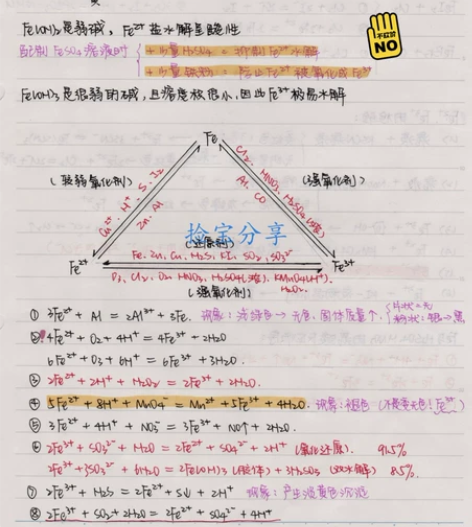 Fe(OH)₂是弱碱，Fe²⁺盐水解显酸性
配制FeSO₄溶液时 +少量H₂SO₄：抑制Fe²⁺水解
+少量铁粉：防止Fe²⁺被氧化成Fe³⁺
NO
Fe(OH)₃是很弱的碱，且溶度积很小，因此Fe³⁺极易水解
Fe
(较弱氧化剂)
(强氧化剂)
Cu²⁺ H⁺ S I₂
Zn Al
Cl₂ HNO₃ H₂SO₄(浓)
Al CO
捡宝分享
(还原剂)
Fe²⁺
Fe, Zn, Cu, H₂S, KI, SO₂, SO₃²⁻
Fe³⁺
Cl₂ O₂ HNO₃ H₂SO₄(浓) KMnO₄(H⁺)
H₂O₂
(强氧化剂)
① 3Fe²⁺ + Al = 2Al³⁺ + 3Fe. 现象：浅绿色→无色，固体质量个.
② 4Fe²⁺ + O₂ + 4H⁺ = 4Fe³⁺ + 2H₂O
6Fe²⁺ + O₃ + 6H⁺ = 6Fe³⁺ + 3H₂O.
③ 2Fe²⁺ + 2H⁺ + H₂O₂ = 2Fe³⁺ + 2H₂O.
④ 5Fe²⁺ + 8H⁺ + MnO₄⁻ = Mn²⁺ + 5Fe³⁺ + 4H₂O. 现象：褪色 (不是变无色！Fe³⁺)
⑤ 3Fe²⁺ + 4H⁺ + NO₃⁻ = 3Fe³⁺ + NO↑ + 2H₂O.
⑥ 2Fe³⁺ + SO₃²⁻ + H₂O = 2Fe²⁺ + SO₄²⁻ + 2H⁺ (氧化还原). 91.5%
2Fe³⁺ + 3SO₃²⁻ + 6H₂O = 2Fe(OH)₃(胶体) + 3H₂SO₃ (双水解) 8.5%.
⑦ 2Fe³⁺ + H₂S = 2Fe²⁺ + S↓ + 2H⁺ 现象：产生淡黄色沉淀
⑧ 2Fe³⁺ + SO₂ + 2H₂O = 2Fe²⁺ + SO₄²⁻ + 4H⁺